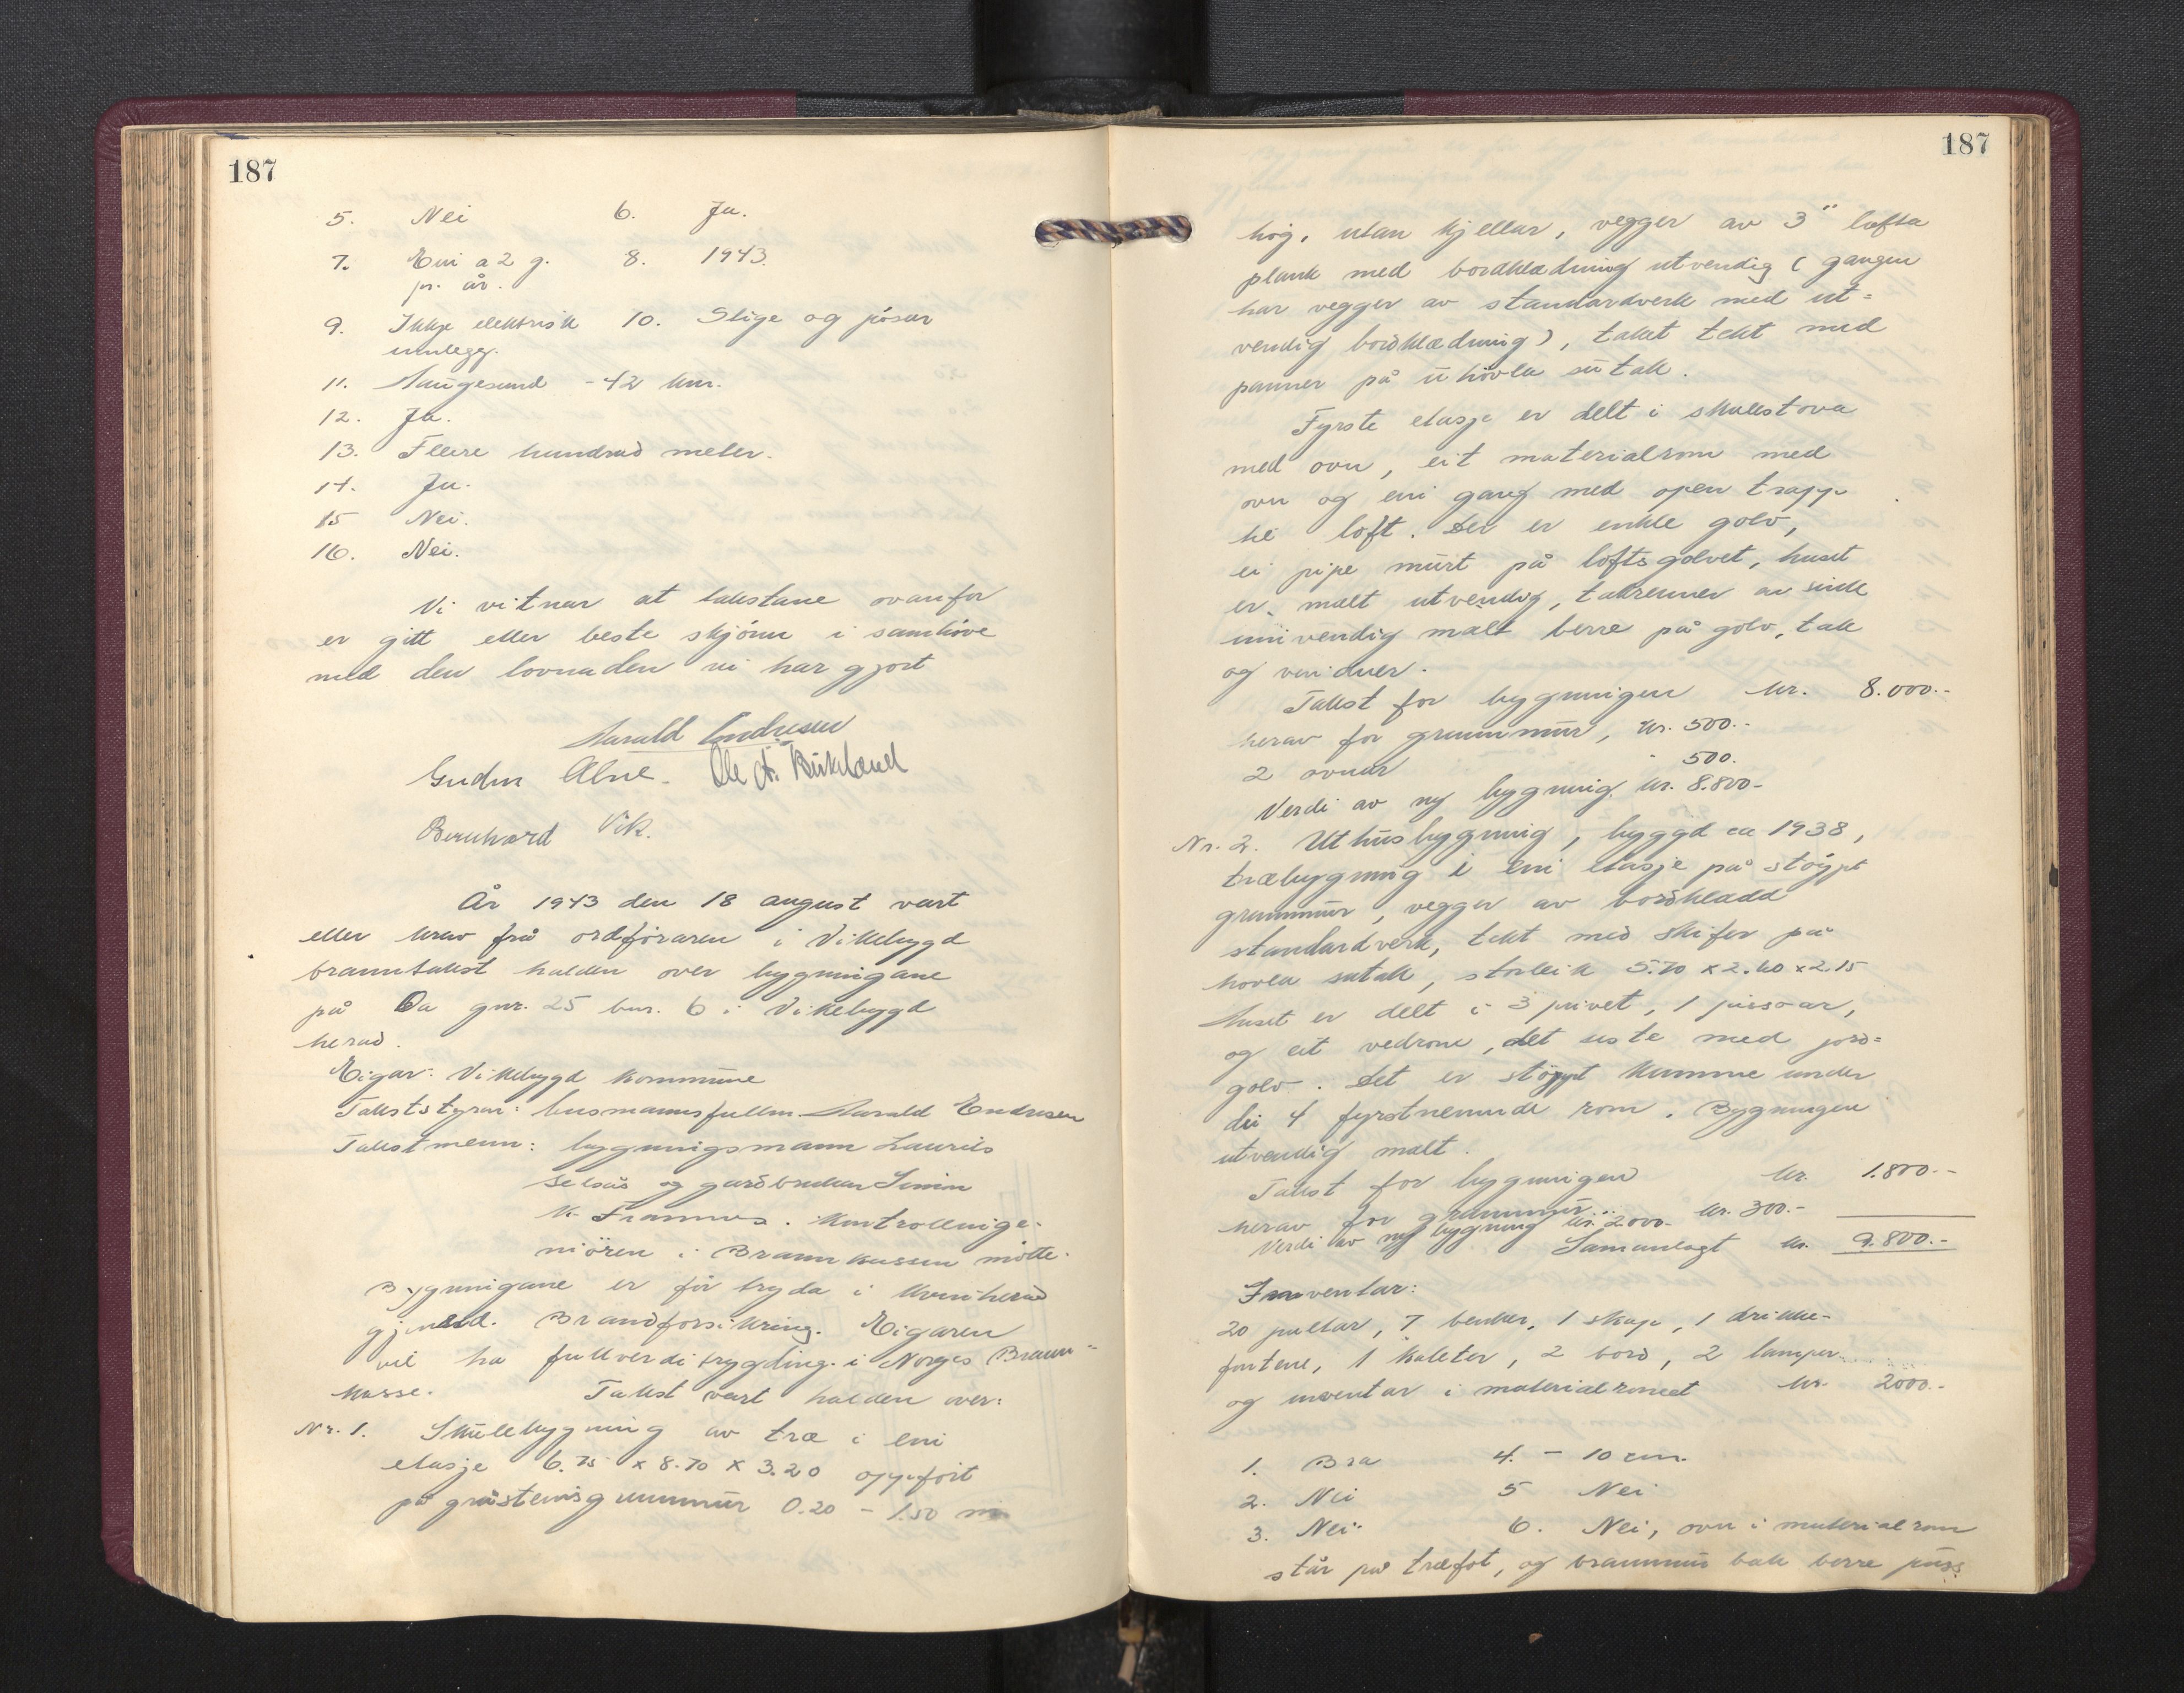 187
5. Nei 6. Ja.
7. Ein a 2 g. 8. 1943.
pr. år.
9. Ikkje elektrisk 10. Stige og pøsar
innlegg.
11. Haugesund - 42 km.
12. Ja.
13. Fleire hundrad meter.
14. Ja.
15 Nei.
16. Nei.
Vi vitnar at takstane ovanfor
er gitt etter beste skjønn i samhøve
med den lovnaden vi har gjort
Harald Endresen
Gudm Alne. Ole A. Birkeland
Bernhard Vik.
År 1943 den 18 august vart
etter krav frå ordføraren i Vikebygd
branntakst halden over bygningane
på Øa gnr. 25 bnr. 6 i Vikebygd
herad.
Eigar: Vikebygd kommune
Takststyrar: lensmannsfullm. Harald Endresen
Takstmenn: bygningsmann Laurits
Selsås og gardbrukar Simon
K. Framnes. Kontrollinge-
niören i Brannkassen møtte.
Bygningane er før trygda i Kvinherad
gjensid. Brandforsikring. Eigaren
vil ha fullverditrygding i Norges Brann-
kasse. Takst vart halden over:
Nr. 1. Skulebygning av træ i ein
etasje 6.75 x 8.70 x 3.20 oppført
på gråsteinsgrunnmur 0.20 - 1.50 m
187
høg, utan kjellar, vegger av 3" lafta
plank med bordklædning utvendig (gangen
har vegger av standardverk med ut=
vendig bordklædning), taket tekt med
panner på uhøvla sutak.
Fyrste etasje er delt i skulestova
med ovn, eit materialrom med
ovn og ein gang med open trapp
til loft. Det er enkle golv,
ei pipe murt på loftsgolvet, huset
er malt utvendig, takrenner av sink
innvendig malt berre på golv, tak
og vinduer.
Takst for bygningen kr. 8.000.-
herav for grunnmur, kr. 500.-
2 ovnar " 500.
Verdi av ny bygning kr. 8.800-
Nr. 2. Uthusbygning, byggd ca 1938,
træbygning i ein etasje på støypt
grunnmur, vegger av bordkledd
standardverk, tekt med skifer på
høvla sutak, storleik 5.70 x 2.60 x 2.15
Huset er delt i 3 privet, 1 pissoar,
og eit vedrom, det siste med jord=
golv. Det er støypt kumme under
dei 4 fyrstnemnde rom. Bygningen
utvendig malt.
Takst for bygningen kr. 1.800.-
herav for grunnmur... kr. 300.-
Verdi av ny bygning kr. 2000.-
Samanlagt kr. 9.800.-
Inventar:
20 pultar, 7 benker, 1 skap, 1 drikke-
fontene, 1 kateter, 2 bord, 2 lamper
og inventar i materialromet kr. 2000.-
1. Bra 4. - 10 cm.
2. Nei 5 Nei
3. Nei. 6. Nei, ovn i materialrom
står på træfot, og brannmur bak berre puss